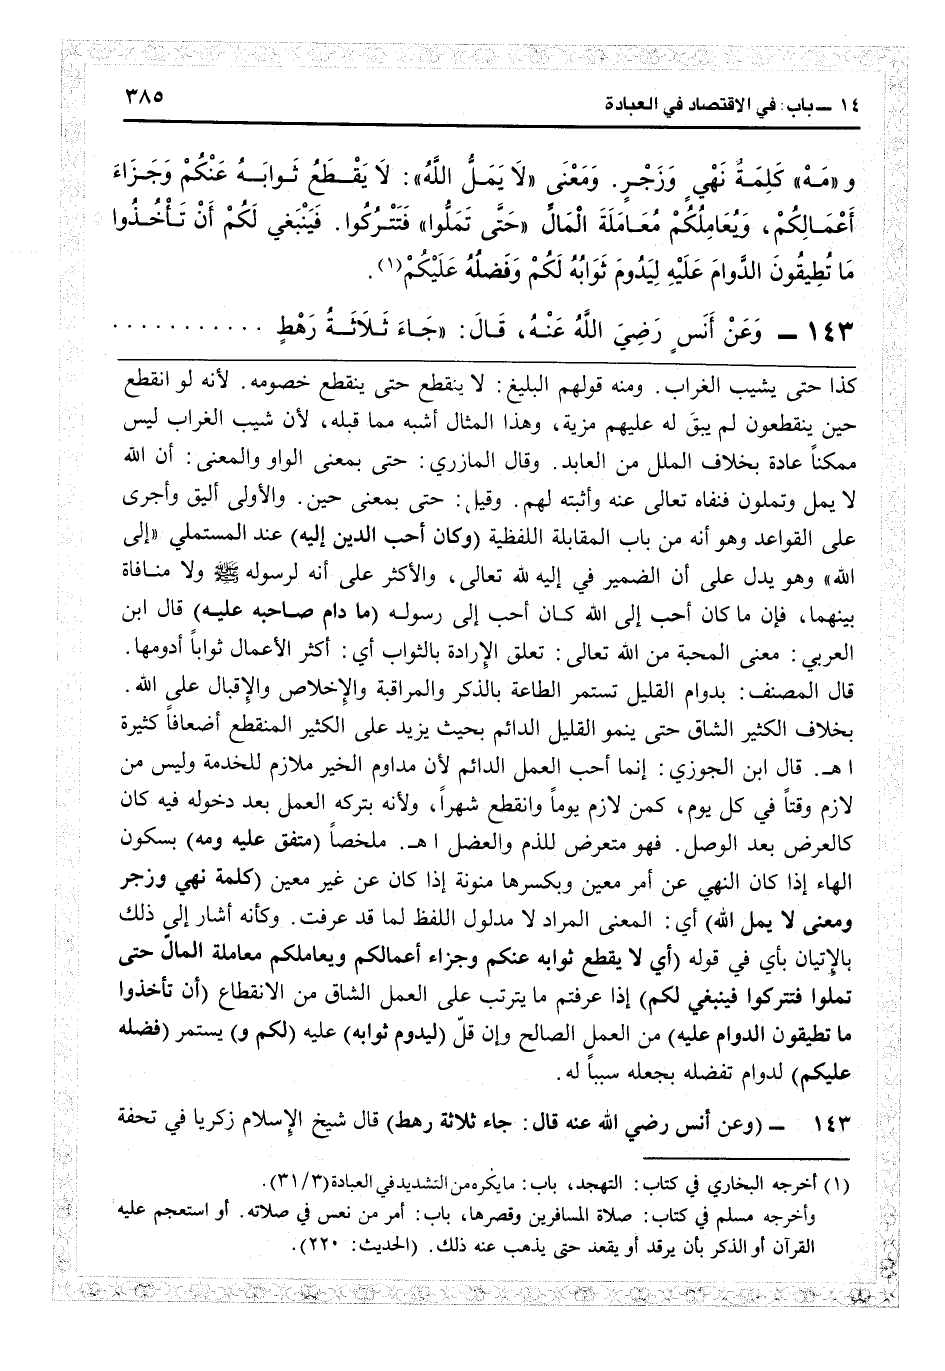 ١٤ ــ باب: في الاقتصاد في العبادة ٣٨٥
و «مَهْ» كَلِمَةُ نَهْيٍ وَزَجْرٍ. وَمَعْنَى «لَا يَمَلُّ اللَّهُ»: لَا يَقْطَعُ ثَوابَهُ عَنْكُمْ وَجَزَاءَ
أَعْمَالِكُمْ، وَيُعَامِلُكُمْ مُعَامَلَةَ الْمَالِّ «حَتَّى تَمَلُّوا» فَتَتْرُكُوا. فَيَنْبَغِي لَكُمْ أَنْ تَأْخُذُوا
مَا تُطِيقُونَ الدَّوامَ عَلَيْهِ لِيَدُومَ ثَوَابُهُ لَكُمْ وَفَضلُهُ عَلَيْكُمْ(١).
١٤٣ ــ وَعَنْ أَنَسٍ رَضِيَ اللَّهُ عَنْهُ، قَالَ: «جَاءَ ثَلَاثَةُ رَهْطٍ ...........
كذا حتى يشيب الغراب. ومنه قولهم البليغ: لا ينقطع حتى ينقطع خصومه. لأنه لو انقطع
حين ينقطعون لم يبقَ له عليهم مزية، وهذا المثال أشبه مما قبله، لأن شيب الغراب ليس
ممكناً عادة بخلاف الملل من العابد. وقال المازري: حتى بمعنى الواو والمعنى: أن الله
لا يمل وتملون فنفاه تعالى عنه وأثبته لهم. وقيل: حتى بمعنى حين. والأولى أليق وأجرى
على القواعد وهو أنه من باب المقابلة اللفظية (وكان أحب الدين إليه) عند المستملي «إلى
الله» وهو يدل على أن الضمير في إليه لله تعالى، والأكثر على أنه لرسوله ﷺ ولا منافاة
بينهما، فإن ما كان أحب إلى الله كان أحب إلى رسوله (ما دام صاحبه عليه) قال ابن
العربي: معنى المحبة من الله تعالى: تعلق الإرادة بالثواب أي: أكثر الأعمال ثواباً أدومها.
قال المصنف: بدوام القليل تستمر الطاعة بالذكر والمراقبة والإخلاص والإقبال على الله.
بخلاف الكثير الشاق حتى ينمو القليل الدائم بحيث يزيد على الكثير المنقطع أضعافاً كثيرة
ا هـ. قال ابن الجوزي: إنما أحب العمل الدائم لأن مداوم الخير ملازم للخدمة وليس من
لازم وقتاً في كل يوم، كمن لازم يوماً وانقطع شهراً، ولأنه بتركه العمل بعد دخوله فيه كان
كالعرض بعد الوصل. فهو متعرض للذم والعضل ا هـ. ملخصاً (متفق عليه ومه) بسكون
الهاء إذا كان النهي عن أمر معين وبكسرها منونة إذا كان عن غير معين (كلمة نهي وزجر
ومعنى لا يمل الله) أي: المعنى المراد لا مدلول اللفظ لما قد عرفت. وكأنه أشار إلى ذلك
بالإتيان بأي في قوله (أي لا يقطع ثوابه عنكم وجزاء أعمالكم ويعاملكم معاملة المالّ حتى
تملوا فتتركوا فينبغي لكم) إذا عرفتم ما يترتب على العمل الشاق من الانقطاع (أن تأخذوا
ما تطيقون الدوام عليه) من العمل الصالح وإن قلّ (ليدوم ثوابه) عليه (لكم و) يستمر (فضله
عليكم) لدوام تفضله بجعله سبباً له.
١٤٣ ــ (وعن أنس رضي الله عنه قال: جاء ثلاثة رهط) قال شيخ الإسلام زكريا في تحفة
(١) أخرجه البخاري في كتاب: التهجد، باب: ما يكره من التشديد في العبادة (٣١/٣).
وأخرجه مسلم في كتاب: صلاة المسافرين وقصرها، باب: أمر من نعس في صلاته. أو استعجم عليه
القرآن أو الذكر بأن يرقد أو يقعد حتى يذهب عنه ذلك. (الحديث: ٢٢٠).